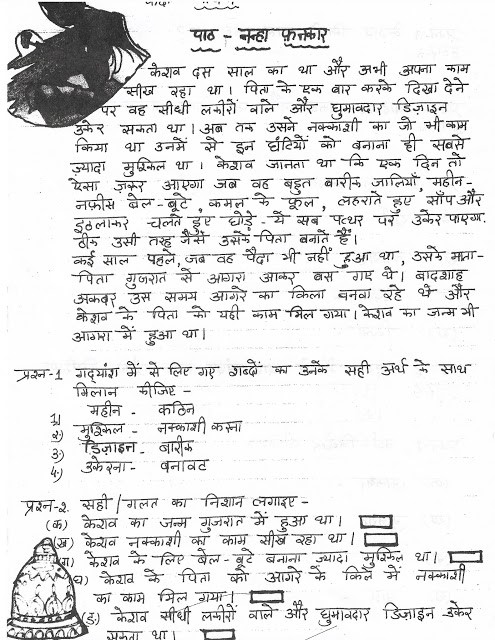 पाठ - नन्हा फनकार
केशव दस साल का था और अभी अपना काम
सीख रहा था। पिता के एक बार करके दिखा देने
पर वह सीधी लकीरों वाले और घुमावदार डिज़ाइन
उकेर सकता था। अब तक उसने नक्काशी का जो भी काम
किया था उनमें से इन घंटियों को बनाना ही सबसे
ज़्यादा मुश्किल था। केशव जानता था कि एक दिन तो
ऐसा ज़रूर आएगा जब वह बहुत बारीक जालियाँ, महीन-
नफीस बेल-बूटे, कमल के फूल, लहराते हुए साँप और
इठलाकर चलते हुए घोड़े - ये सब पत्थर पर उकेर पाएगा
ठीक उसी तरह जैसे उसके पिता बनाते हैं।
कई साल पहले, जब वह पैदा भी नहीं हुआ था, उसके माता-
पिता गुजरात से आगरा आकर बस गए थे। बादशाह
अकबर उस समय आगरे का किला बनवा रहे थे और
केशव के पिता को यहीं काम मिल गया। केशव का जन्म भी
आगरा में हुआ था।
प्रश्न-1 गद्यांश में से लिए गए शब्दों का उनके सही अर्थ के साथ
मिलान कीजिए -
1) महीन - कठिन
2) मुश्किल - नक्काशी करना
3) डिज़ाइन - बारीक
4) उकेरना - बनावट
प्रश्न-2. सही/गलत का निशान लगाइए -
(क) केशव का जन्म गुजरात में हुआ था।
(ख) केशव नक्काशी का काम सीख रहा था।
(ग) केशव के लिए बेल-बूटे बनाना ज्यादा मुश्किल था।
(घ) केशव के पिता को आगरे के किले में नक्काशी
का काम मिल गया।
(ङ) केशव सीधी लकीरों वाले और घुमावदार डिज़ाइन उकेर
सकता था।